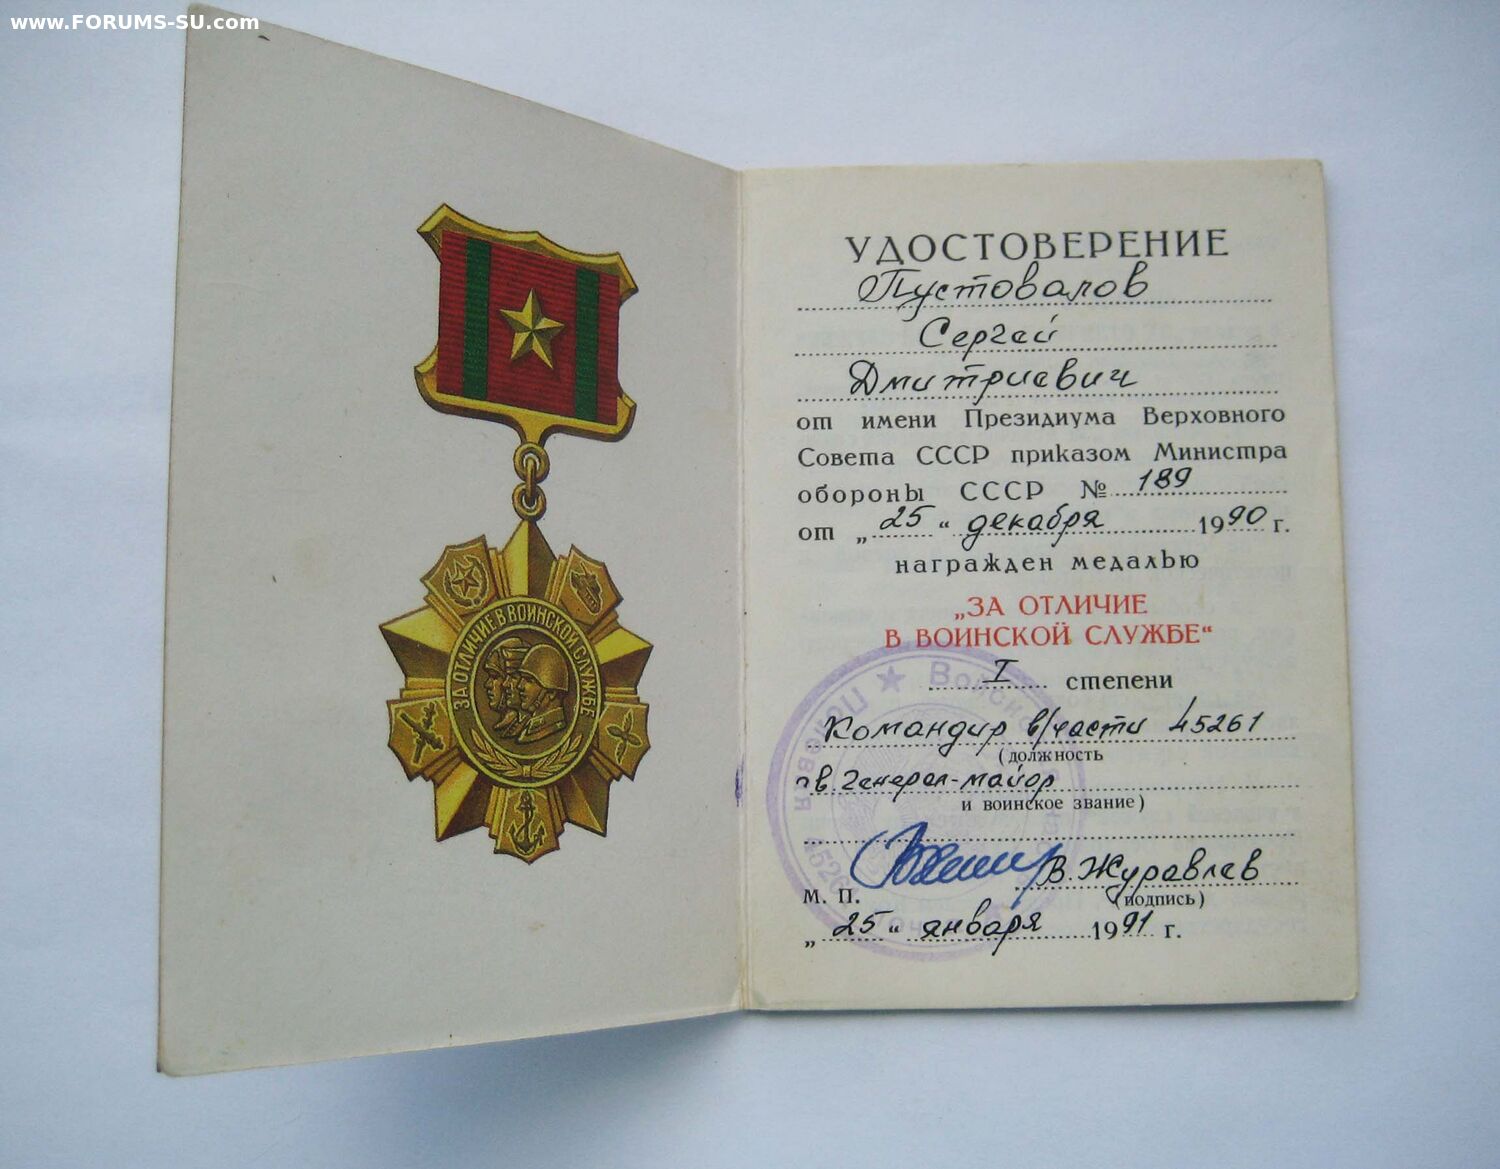 www.FORUMS-SU.com
ЗА ОТЛИЧИЕ В ВОИНСКОЙ СЛУЖБЕ
УДОСТОВЕРЕНИЕ
Пустовалов
Сергей
Дмитриевич
от имени Президиума Верховного
Совета СССР приказом Министра
обороны СССР № 189
от „25“ декабря 1990 г.
награжден медалью
„ЗА ОТЛИЧИЕ
В ВОИНСКОЙ СЛУЖБЕ“
I степени
Командир в/части 45261
(должность
гв. генерал-майор
и воинское звание)
В. Журавлев
М. П. (подпись)
„25“ января 1991 г.